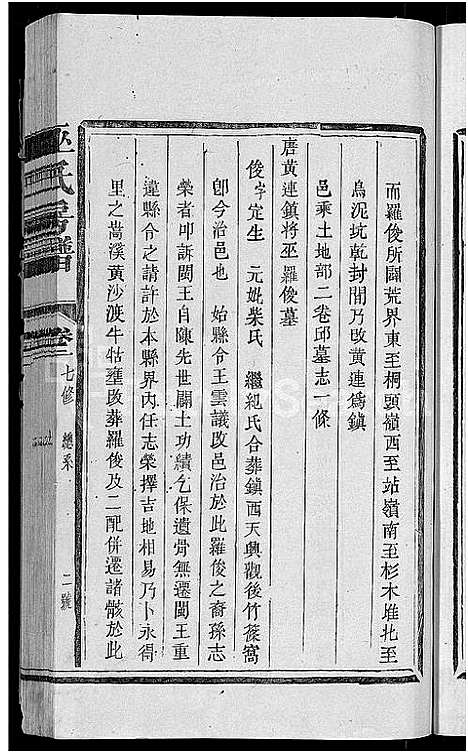 而羅俊所闢荒界東至桐頭嶺西至站嶺南至杉木堆北至
烏泥坑乾封間乃改黃連為鎮
邑乘土地部二卷邱墓志一條
唐黃連鎮將巫羅俊墓
俊字定生　元妣柴氏　繼紀氏合葬鎮西天興觀後竹篠窩
卽今治邑也　始縣令王雲議改邑治於此羅俊之裔孫志
榮者叩訴閩王自陳先世闢土功績乞保遺骨無遷閩王重
違縣令之請許於本縣界內任志榮擇吉地相易乃卜永得
里之嵩溪黃沙渡牛牯壅改葬羅俊及二配併遷諸骸於此
巫氏房譜
卷二
七修
總系
二號